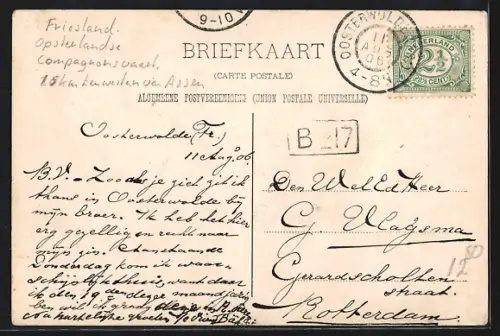 9-10 V
Friesland.
Opsterlandse
Compagnonsvaart.
15 km
Assen
BRIEFKAART
(CARTE POSTALE)
ALGEMEENE POSTVEREENIGING (UNION POSTALE UNIVERSELLE)
OOSTERWOLDE
11
AUG
06
4-8
NEDERLAND
2½
CENT
B 17
Oosterwolde (Fr.)
11 Aug. 06
B.V. - Zooals je ziet zit ik
thans in Oosterwolde bij
mijn broer. Ik heb het hier
erg gezellig en recht naar
mijn zin. Aanstaande
Donderdag kom ik waar-
schijnlijk thuis, want daar
ik den 19
hartelijke groeten
Den WelEd. Heer
G. Vlaysma
Gerard Scholten
straat.
Rotterdam.
12